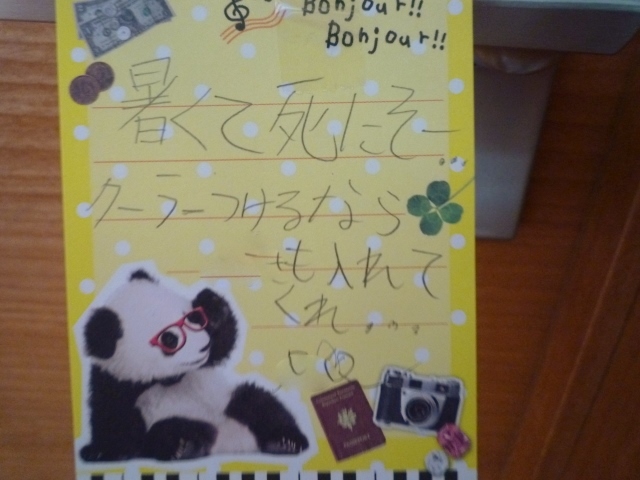 Bonjour!!
Bonjour!!
暑くて死にそー
...
クーラーつけるなら
も入れて
くれ...